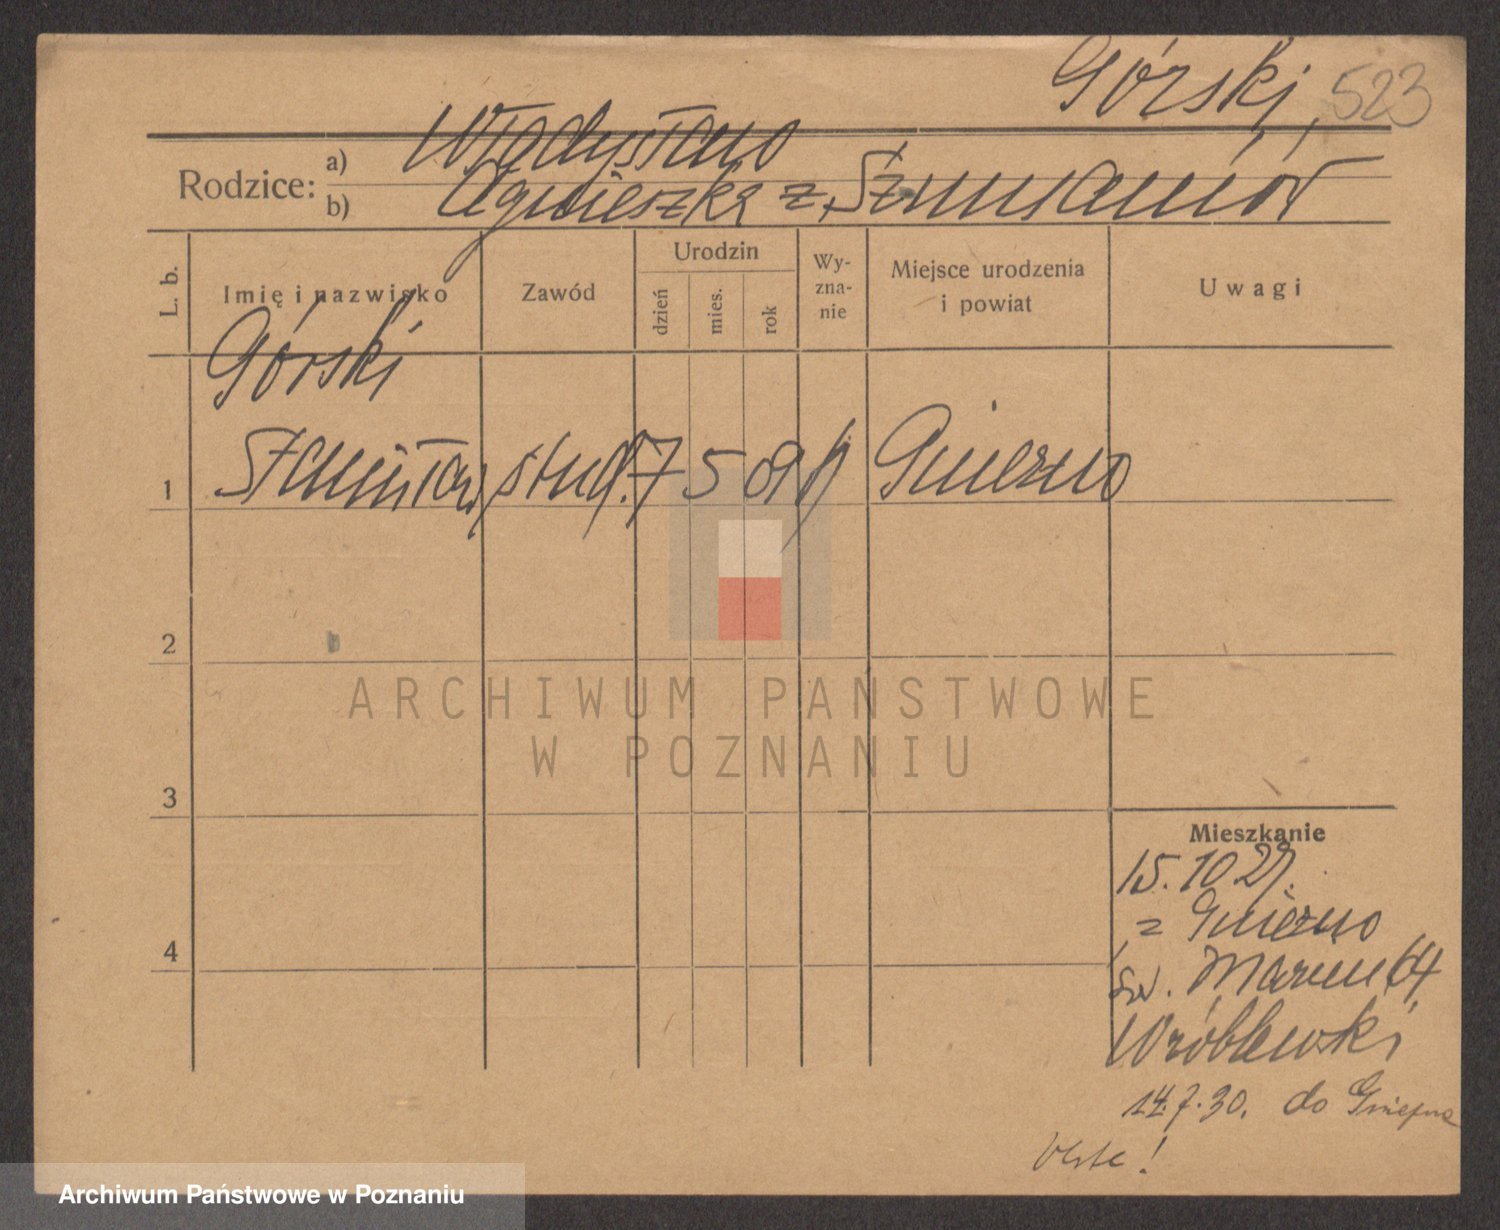 Górski, 523
Rodzice: a) Władysław
b) Agnieszka z Szumanów
L. b. Imię i nazwisko Zawód Urodzin dzień mies. rok Wy- zna- nie Miejsce urodzenia i powiat Uwagi
Górski
1 Stanisław stud. 7 5 09 Gniezno
2
3
4
Mieszkanie
15.10 29.
z Gniezno
św. Marcin 64
Wróblewski
14.7.30. do Gniezna
Verte!
ARCHIWUM PAŃSTWOWE
W POZNANIU
Archiwum Państwowe w Poznaniu